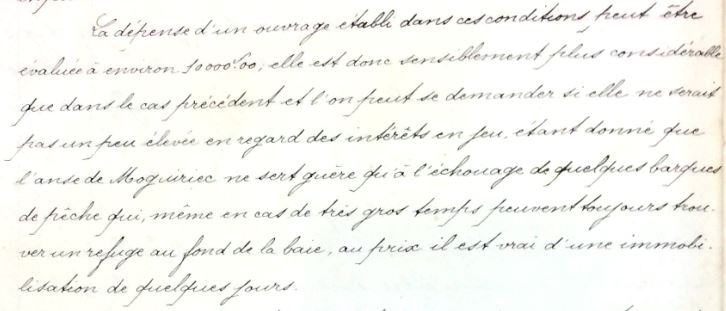 La dépense d'un ouvrage établi dans ces conditions peut être
évaluée à environ 10000f00, elle est donc sensiblement plus considérable
que dans le cas précédent et l'on peut se demander si elle ne serait
pas un peu élevée en regard des intérêts en jeu, étant donné que
l'anse de Moguiriec ne sert guère qu'à l'échouage de quelques barques
de pêche qui, même en cas de très gros temps peuvent toujours trou-
ver un refuge au fond de la baie, au prix il est vrai d'une immobi-
lisation de quelques jours.